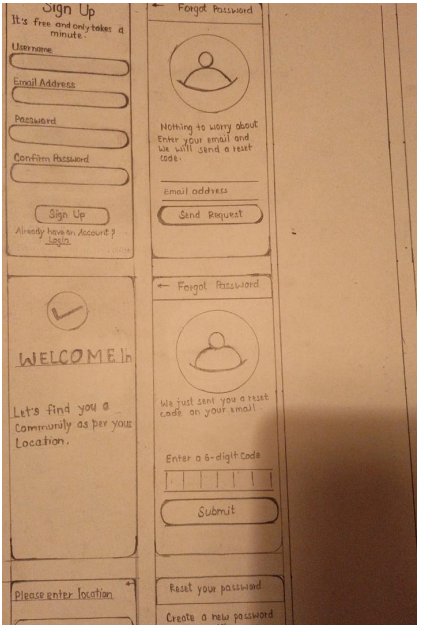 Sign Up
It's free and only takes a
minute.
Username
Email Address
Password
Confirm Password
Sign Up
Already have an Account?
Login
← Forgot Password
Nothing to worry about
Enter your email and
We will send a reset
code.
Email address
Send Request
WELCOME In
Let's find you a
Community as per your
Location.
← Forgot Password
We just sent you a reset
code on your email
Enter a 6-digit Code
Submit
Please enter location
Reset your password
Create a new password